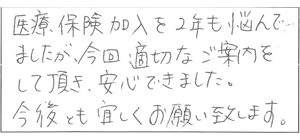 医療保険加入を2年も悩んで
ましたが、今回適切なご案内を
して頂き、安心できました。
今後とも宜しくお願い致します。